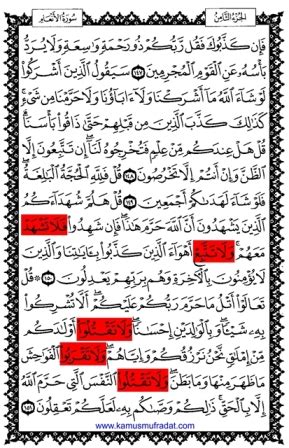 سُورَةُ الأَنْعَام الجُزْءُ الثَّامِنُ
فَإِن كَذَّبُوكَ فَقُل رَّبُّكُمْ ذُو رَحْمَةٍ وَاسِعَةٍ وَلَا يُرَدُّ
بَأْسُهُ عَنِ الْقَوْمِ الْمُجْرِمِينَ ١٤٧ سَيَقُولُ الَّذِينَ أَشْرَكُوا
لَوْ شَاءَ اللَّهُ مَا أَشْرَكْنَا وَلَا آبَاؤُنَا وَلَا حَرَّمْنَا مِن شَيْءٍ
كَذَٰلِكَ كَذَّبَ الَّذِينَ مِن قَبْلِهِمْ حَتَّىٰ ذَاقُوا بَأْسَنَا
قُلْ هَلْ عِندَكُم مِّنْ عِلْمٍ فَتُخْرِجُوهُ لَنَا إِن تَتَّبِعُونَ إِلَّا
الظَّنَّ وَإِنْ أَنتُمْ إِلَّا تَخْرُصُونَ ١٤٨ قُلْ فَلِلَّهِ الْحُجَّةُ الْبَالِغَةُ
فَلَوْ شَاءَ لَهَدَاكُمْ أَجْمَعِينَ ١٤٩ قُلْ هَلُمَّ شُهَدَاءَكُمُ
الَّذِينَ يَشْهَدُونَ أَنَّ اللَّهَ حَرَّمَ هَٰذَا فَإِن شَهِدُوا فَلَا تَشْهَدْ
مَعَهُمْ وَلَا تَتَّبِعْ أَهْوَاءَ الَّذِينَ كَذَّبُوا بِآيَاتِنَا وَالَّذِينَ
لَا يُؤْمِنُونَ بِالْآخِرَةِ وَهُم بِرَبِّهِمْ يَعْدِلُونَ ١٥٠ ۞ قُلْ
تَعَالَوْا أَتْلُ مَا حَرَّمَ رَبُّكُمْ عَلَيْكُمْ أَلَّا تُشْرِكُوا
بِهِ شَيْئًا وَبِالْوَالِدَيْنِ إِحْسَانًا وَلَا تَقْتُلُوا أَوْلَادَكُم
مِّنْ إِمْلَاقٍ نَّحْنُ نَرْزُقُكُمْ وَإِيَّاهُمْ وَلَا تَقْرَبُوا الْفَوَاحِشَ
مَا ظَهَرَ مِنْهَا وَمَا بَطَنَ وَلَا تَقْتُلُوا النَّفْسَ الَّتِي حَرَّمَ اللَّهُ
إِلَّا بِالْحَقِّ ذَٰلِكُمْ وَصَّاكُم بِهِ لَعَلَّكُمْ تَعْقِلُونَ ١٥١
www.kamusmufradat.com